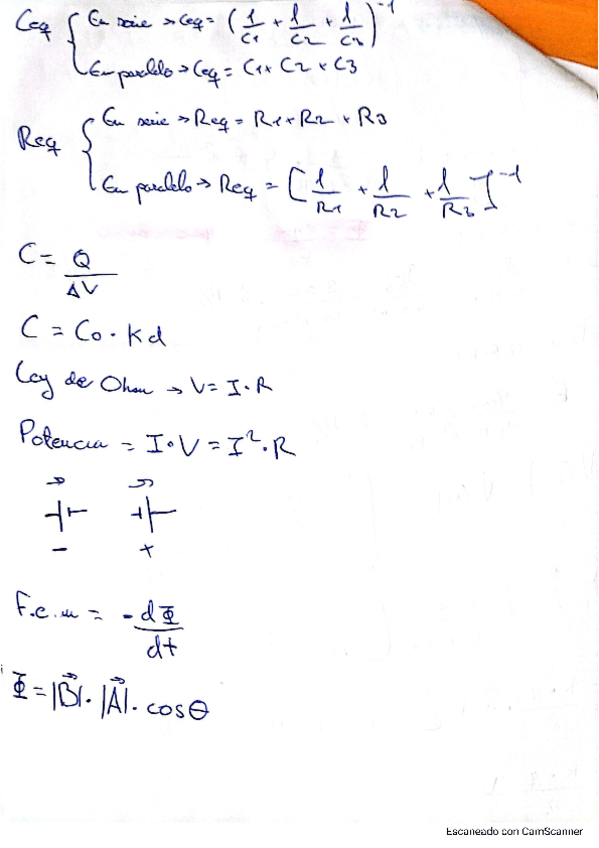 Ceq { En serie → Ceq = (1/C1 + 1/C2 + 1/C3)^-1
En paralelo → Ceq = C1+ C2 + C3
Req { En serie → Req = R1+R2 + R3
En paralelo → Req = [1/R1 + 1/R2 + 1/R3]^-1
C = Q/ΔV
C = Co · Kd
Ley de Ohm → V = I · R
Potencia = I · V = I² · R
- +
F.e.m = - dΦ/dt
Φ = |B⃗| · |A⃗| · cos θ
Escaneado con CamScanner